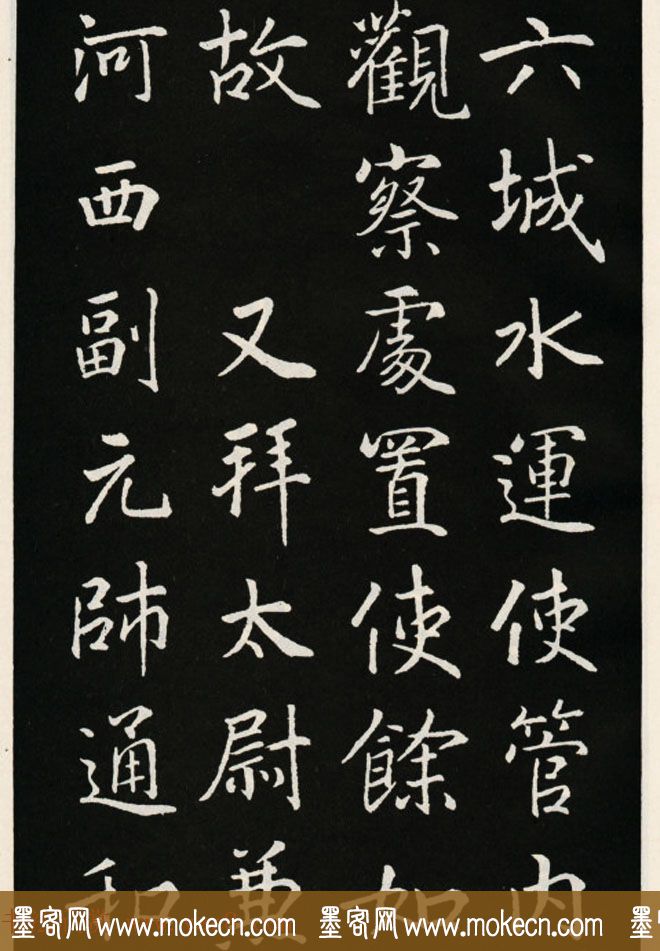 六城水運使管内
觀察處置使餘如
故 又拜太尉兼
河西副元帥通和
墨客网 www.mokecn.com 墨客网 www.mokecn.com